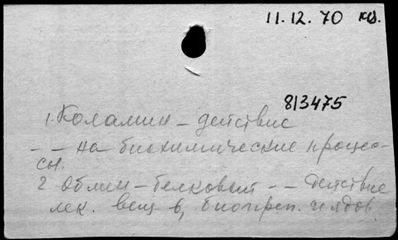 11.12.70 кв.
8/3475
1. Коламин – действие
– – на биохимические процес-
сы.
2 обмен – белковый – – действие
лек. вещ-в, биопреп. и ядов